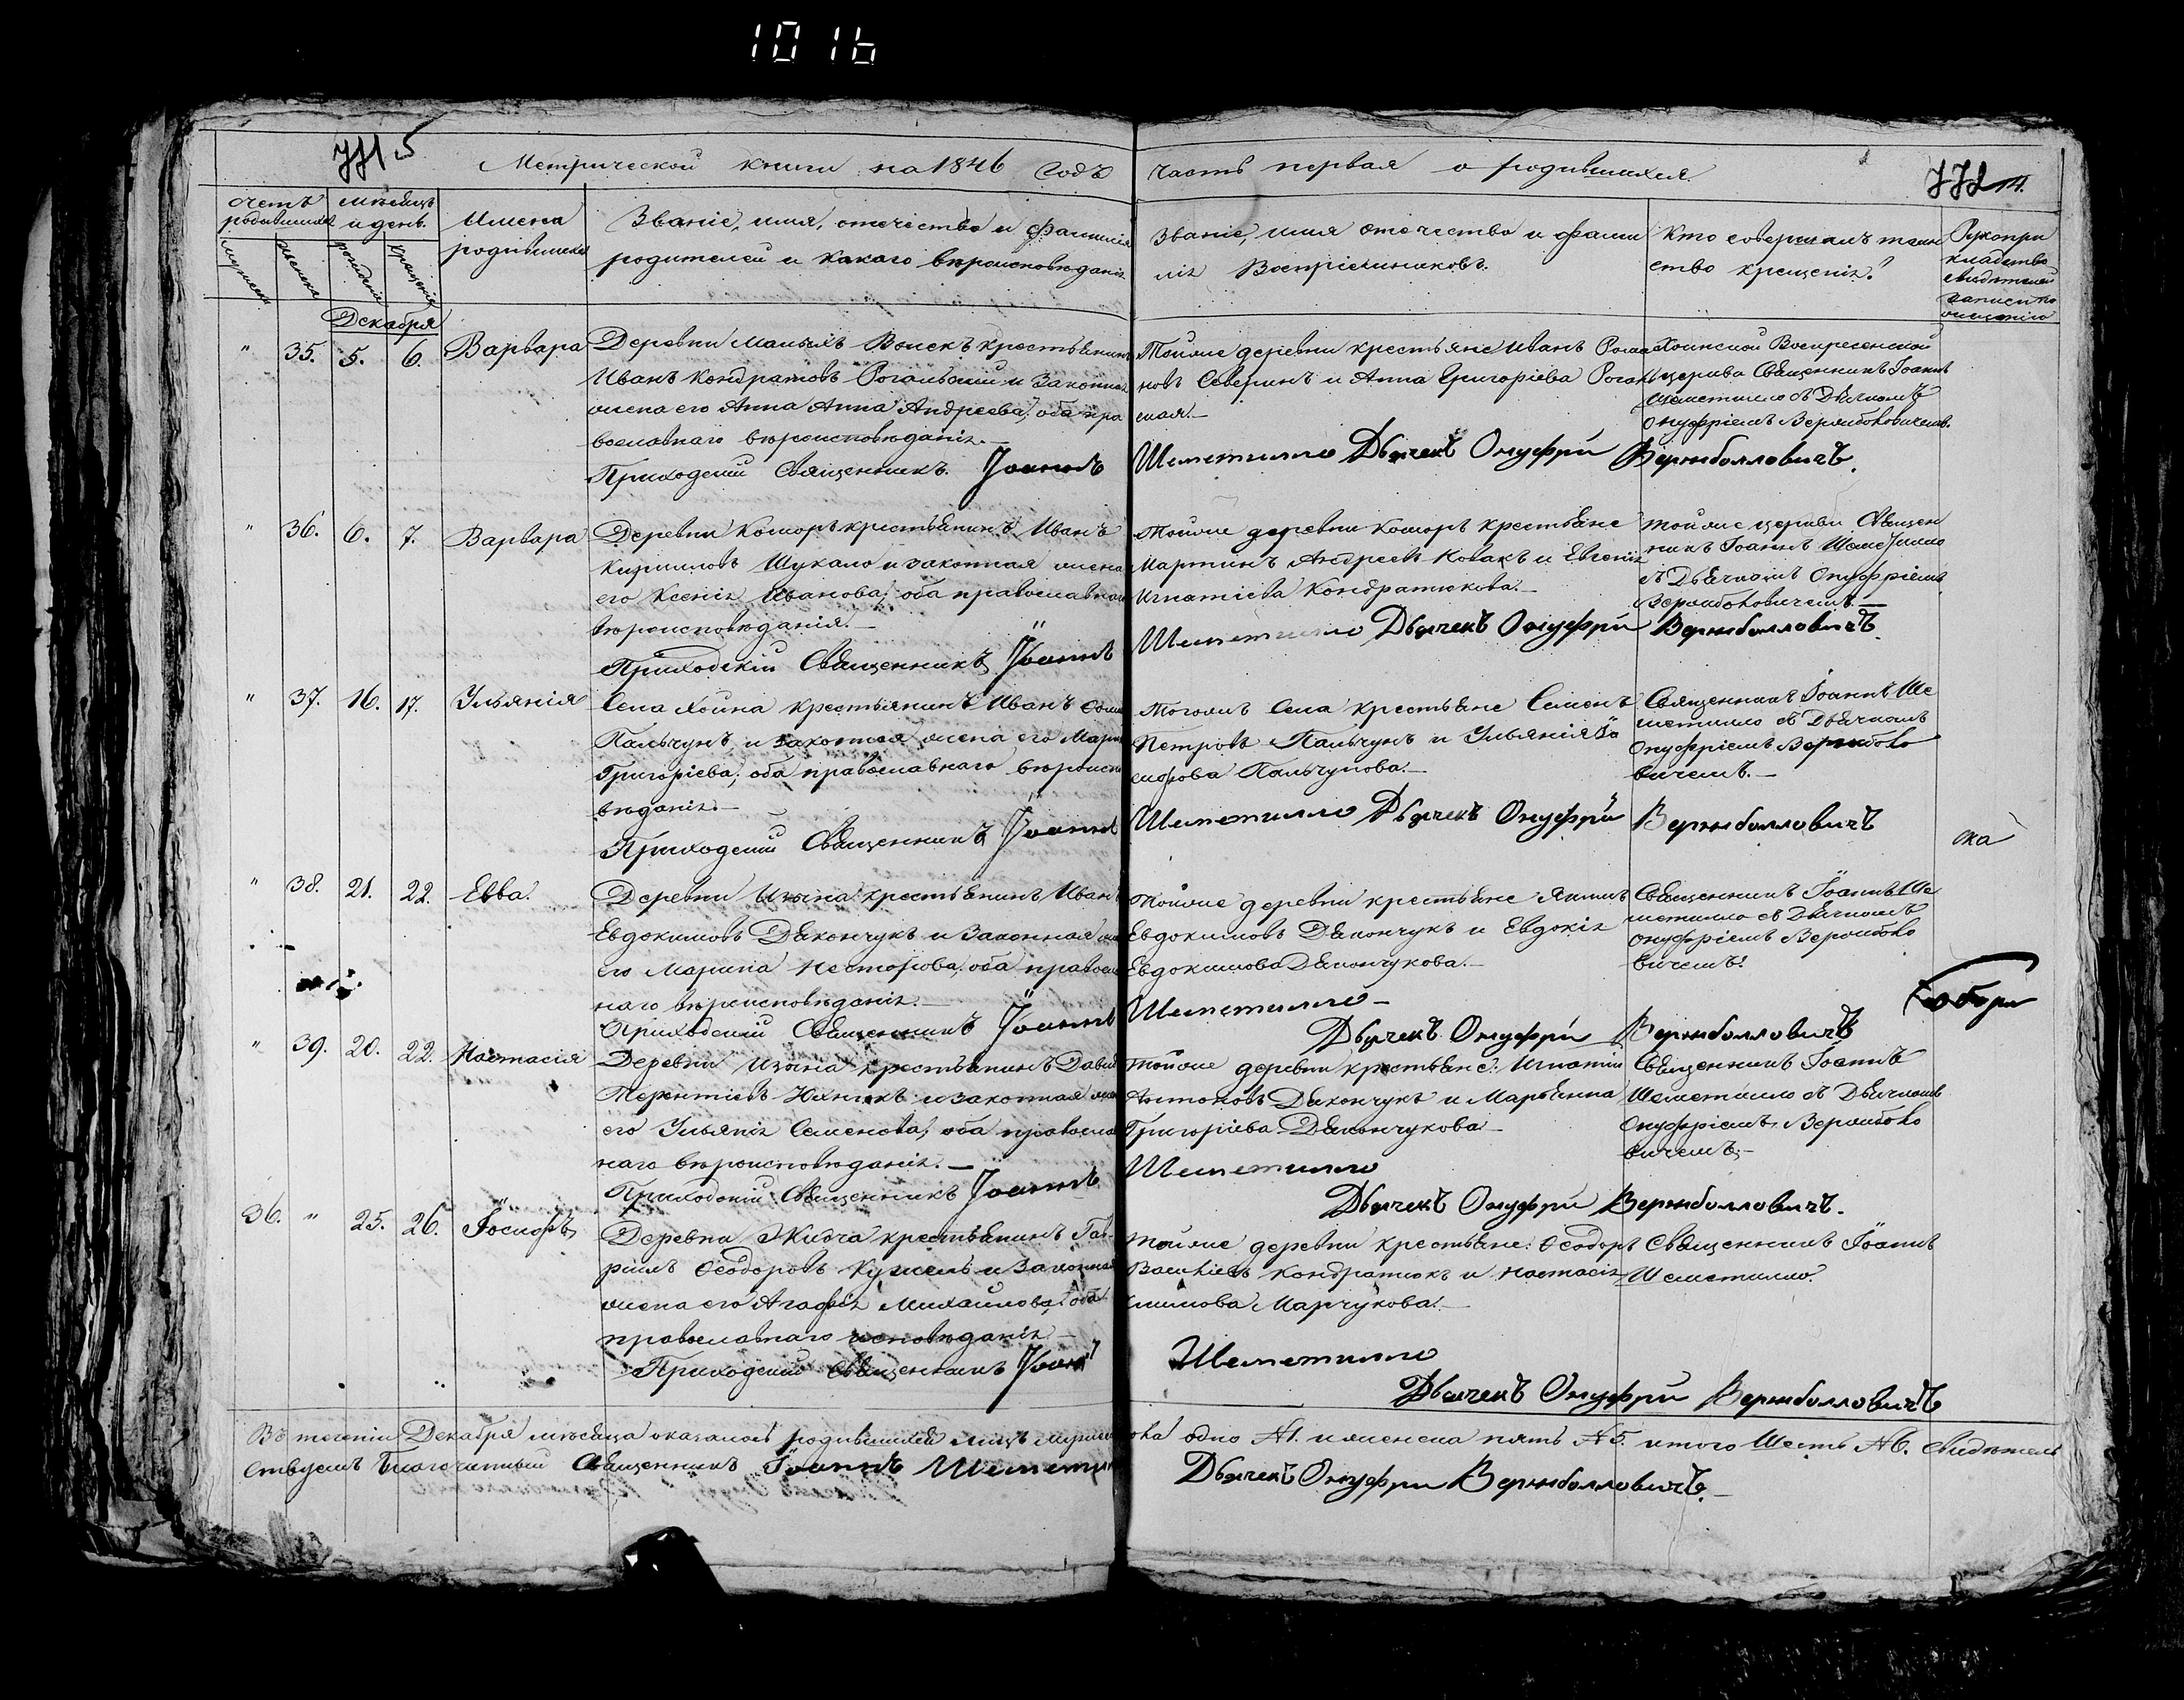 1016
Метрической книги на 1846 годъ часть первая о родившихся.
счетъ родившихся
мѣсяцъ и день.
Имена родившихся
Званіе, имя, отечество и фамилія
родителей и какого вѣроисповѣданія
Званіе, имя отечество и фами
лія Воспріемниковъ.
Кто совершалъ таин
ство крещенія?
Рукопри
кладство
свидѣтелей
записи по
Декабря
" 35. 5. 6. Варвара
Деревни Малыхъ Воискъ крестьянинъ
Иванъ Кондратовъ Рогальскій и законная
жена его Анна Анна Андреева, оба пра
вославнаго вѣроисповѣданія.—
Приходскій Священникъ Іоаннъ
Тойже деревни крестьяне Иванъ
новъ Северинъ и Анна Григоріева
ская.—
Хоинской Воскресенской
церкви Священникъ Іоаннъ
Шеметилло съ Дьячкомъ
Онуфріемъ
Шеметилло Дьячекъ Онуфри Вержболловичъ.
" 36. 6. 7. Варвара
Деревни Коморъ крестьянинъ Иванъ
Кириловъ Шукало и законная жена
его Ксенія Иванова, оба православнаго
вѣроисповѣданія.—
Приходскій Священникъ Іоаннъ
Тойже деревни Коморъ крестьяне
Мартинъ Андреевъ Ковакъ и Евгенія
Игнатіева Кондратюкова.—
Тойже церкви Священ
никъ Іоаннъ Шеметилло
съ Дьячкомъ Онуфріемъ
Шеметилло Дьячекъ Онуфри Вержболловичъ
" 37. 16. 17. Ульянія
Села Хойна крестьянинъ Иванъ
Пальчунъ и законная жена его Марія
Григоріева, оба православнаго вѣроиспо
вѣданія.—
Приходскій Священникъ Іоаннъ
Тогожъ Села крестьяне Семенъ
Петровъ Пальчунъ и Ульянія Іо
сифова Пальчунова.—
Священникъ Іоаннъ Ше
метилло съ Дьячкомъ
Онуфріемъ Вержболо
вичемъ.—
Шеметилло Дьячекъ Онуфри Вержболловичъ
ска
" 38. 21. 22. Евва.
Деревни Изина крестьянинъ Иванъ
Евдокимовъ Дякончукъ и законная жена
его Марина Несторова, оба православ
наго вѣроисповѣданія.—
Приходскій Священникъ Іоаннъ
Тойже деревни крестьяне Якимъ
Евдокимовъ Дякончукъ и Евдокія
Евдокимова Дякончукова.—
Священникъ Іоаннъ Ше
метилло съ Дьячкомъ
Онуфріемъ Вержболо
вичемъ.
Шеметилло—
Дьячекъ Онуфри Вержболловичъ
" 39. 20. 22. Настасія
Деревни Изина крестьянинъ Давидъ
Терентіевъ и законная жена
его Ульянія Семенова, оба православ
наго вѣроисповѣданія.—
Приходскій Священникъ Іоаннъ
Тойже деревни крестьяне: Игнатій
Антоновъ Дякончукъ и Марьянна
Григоріева Дякончукова—
Священникъ Іоаннъ
Шеметилло съ Дьячкомъ
Онуфріемъ Вержболо
вичемъ,—
Шеметилло
Дьячекъ Онуфри Вержболловичъ.
36. " 25. 26. Іосифъ
Деревни Жидча крестьянинъ Гав-
ріилъ Ѳеодоровъ Кужель и законная
жена его Агафія Михайлова, оба
православнаго исповѣданія—
Приходскій Священникъ Іоаннъ
Тойже деревни крестьяне: Ѳеодоръ
Васильевъ Кондратюкъ и Настасія
Климова Марчукова.—
Священникъ Іоаннъ
Шеметилло.
Шеметилло
Дьячекъ Онуфри Вержболловичъ
Въ теченіи Декабря мѣсяца оказалось родившихся лицъ мужеска одно №1. и женска пять №5. итого Шесть №6. свидѣтель
ствуемъ Благочинный Священникъ Іоаннъ Шеметилло Дьячекъ Онуфри Вержболловичъ.—